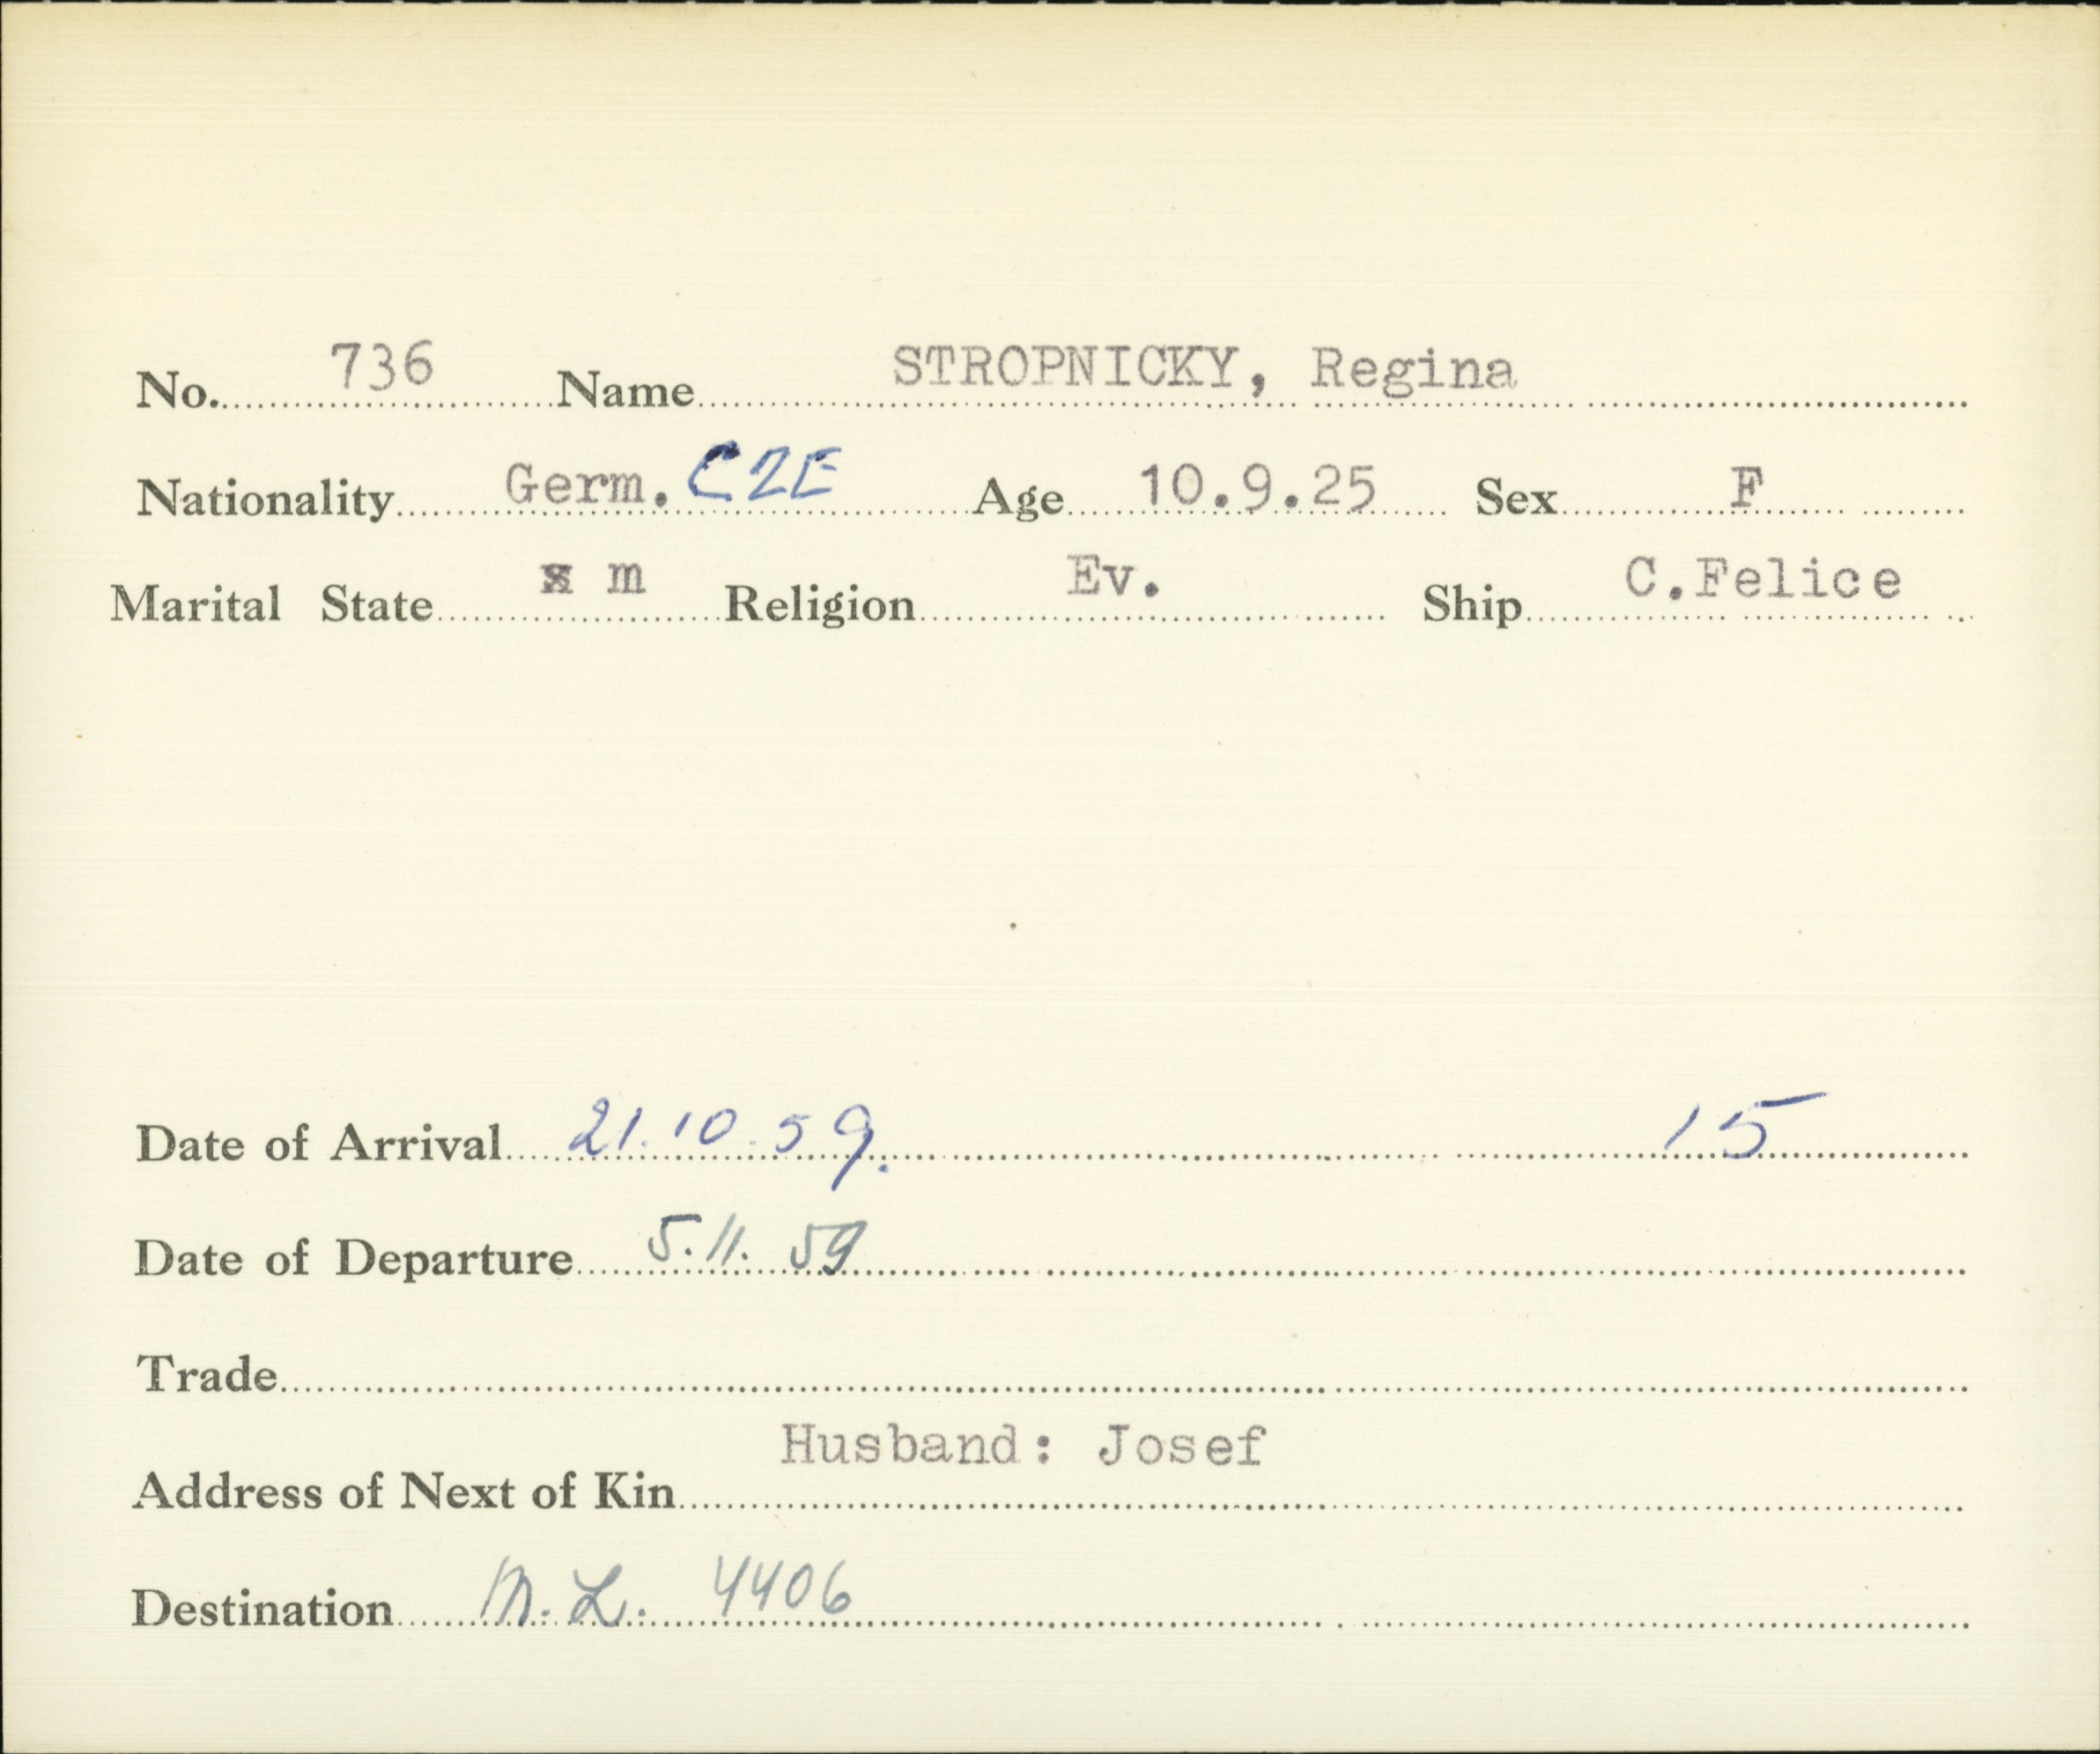 No. 736 Name STROPNICKY, Regina
Nationality Germ. CZE Age 10.9.25 Sex F
Marital State m Religion Ev. Ship C.Felice
Date of Arrival 21.10.59. 15
Date of Departure 5.11.59
Trade
Husband: Josef
Address of Next of Kin
Destination M.L. 4406